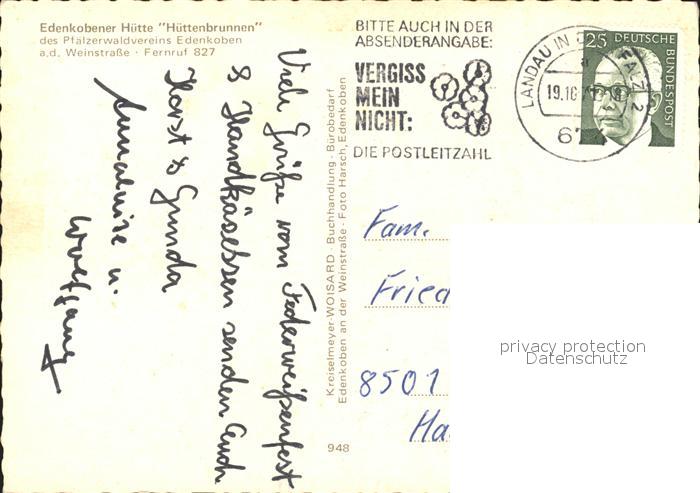 Edenkobener Hütte "Hüttenbrunnen"
des Pfälzerwaldvereins Edenkoben
a.d. Weinstraße · Fernruf 827
Viele Grüße vom Federweißenfest
& Handkäsessen senden Euch
Horst & Gunda
Annaluise u.
Wolfgang
Kreiselmeyer-WOISARD · Buchhandlung · Bürobedarf
Edenkoben an der Weinstraße · Foto Harsch, Edenkoben
948
BITTE AUCH IN DER
ABSENDERANGABE:
VERGISS
MEIN
NICHT:
DIE POSTLEITZAHL
LANDAU IN DER PFALZ 2
19.10.
67
25 DEUTSCHE
BUNDESPOST
Fam.
Fried
8501
Ha
privacy protection
Datenschutz